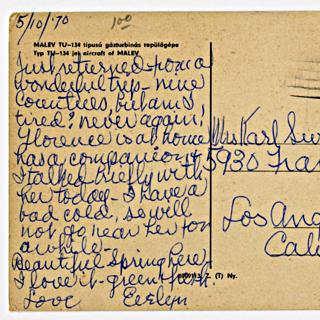 5/10/70
100
MALEV TU—134 tipusú gázturbinás repülőgépe
Typ TU—134 jet aircraft of MALEV
Just returned from a
wonderful trip - nine
countries, but am I
tired? never again!
Florence is at home
has a companion &
I talked briefly with
her today - I have a
bad cold, so will
not go near her for
a while -
Beautiful Spring here
I love it - green & fresh.
Love Evelyn
Mrs Karl
5930
Los Ang
Cali
Z. (T) Ny.